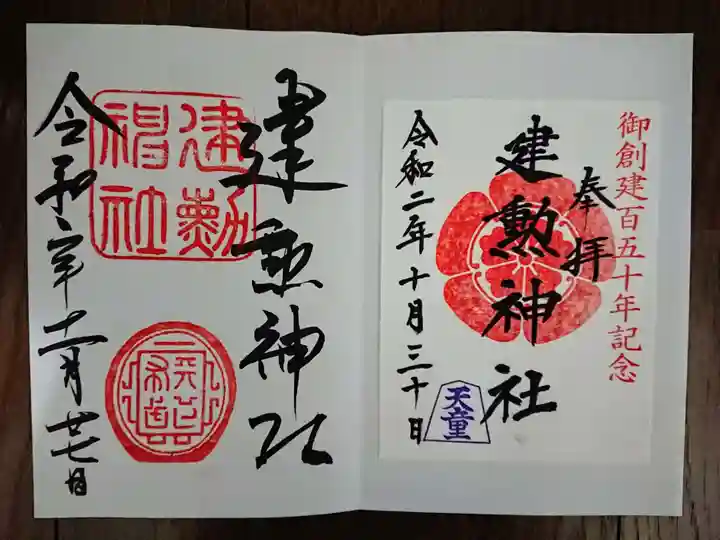 御創建百五十年記念
奉拝
建勲神社
令和二年十月三十日
天童
建勲神社
建勲神社
令和年十一月廿七日
天下布武